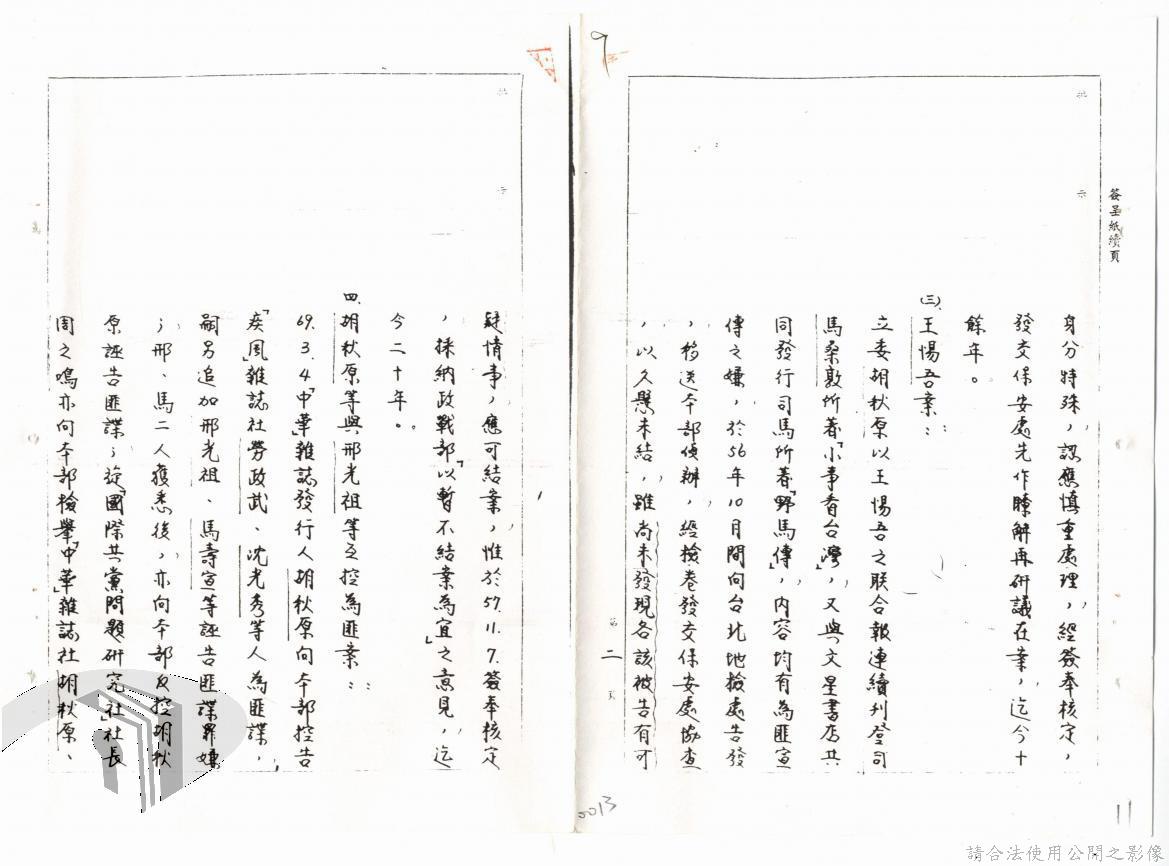 簽呈紙續頁
批示
身分特殊，認應慎重處理，經簽奉核定，
發交保安處先作瞭解再研議在案，迄今十
餘年。
(三)王惕吾案：
立委胡秋原以王惕吾之聯合報連續刊登司
馬桑敦所著「小事看台灣」，又與文星書店共
同發行司馬所著「野馬傳」，內容均有為匪宣
傳之嫌，於56年10月間向台北地檢處告發
，移送本部偵辦，經檢卷發交保安處協查
，以久懸未結，雖尚未發現各該被告有可
第二頁
批示
疑情事，應可結案，惟於57.11.7.簽奉核定
，採納政戰部「以暫不結案為宜」之意見，迄
今二十年。
四、胡秋原等與邢光祖等互控為匪案：
69.3.4「中華」雜誌發行人胡秋原向本部控告
「疾風」雜誌社勞政武、沈光秀等人為匪諜，
嗣另追加邢光祖、馬壽宣等誣告匪諜罪嫌
；邢、馬二人獲悉後，亦向本部反控胡秋
原誣告匪諜；旋「國際共黨問題研究社」社長
周之鳴亦向本部檢舉「中華」雜誌社胡秋原、
9
0013
11
請合法使用公開之影像